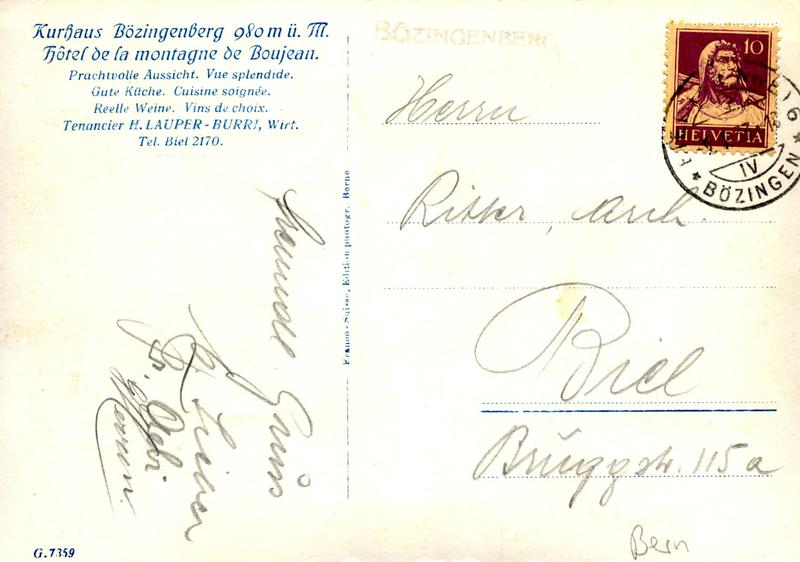 Kurhaus Bözingenberg 980 m ü. M.
Hôtel de la montagne de Boujean.
Prachtvolle Aussicht. Vue splendide.
Gute Küche. Cuisine soignée.
Reelle Weine. Vins de choix.
Tenancier H. LAUPER-BURRI, Wirt.
Tel. Biel 2170.
BÖZINGENBERG
10
HELVETIA
BÖZINGEN
IV
Herrn
Ritter, Arch.
Biel
Bruggstr. 115a
Bern
Franco-Suisse, Edition photogr. Berne
Gruss
G. 7359